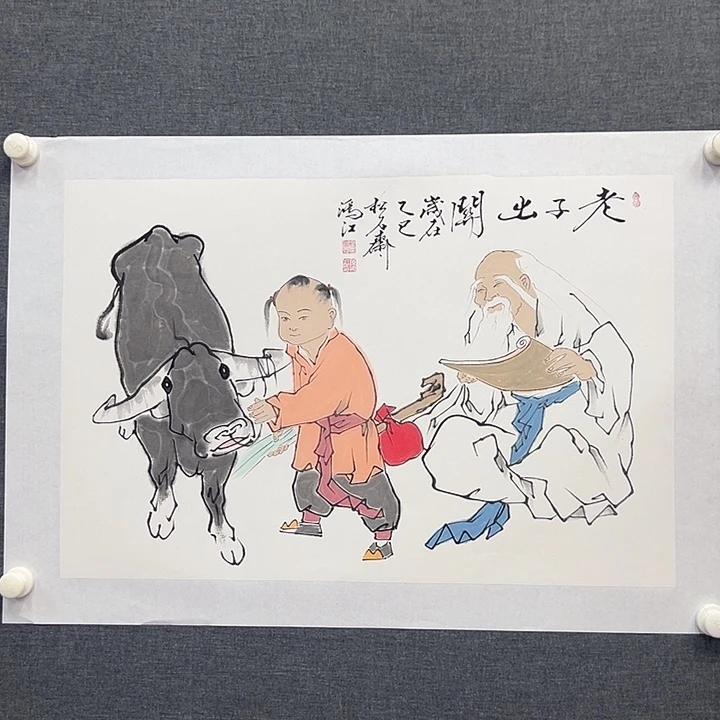 老子出關
歲在
乙巳
松石齋
江